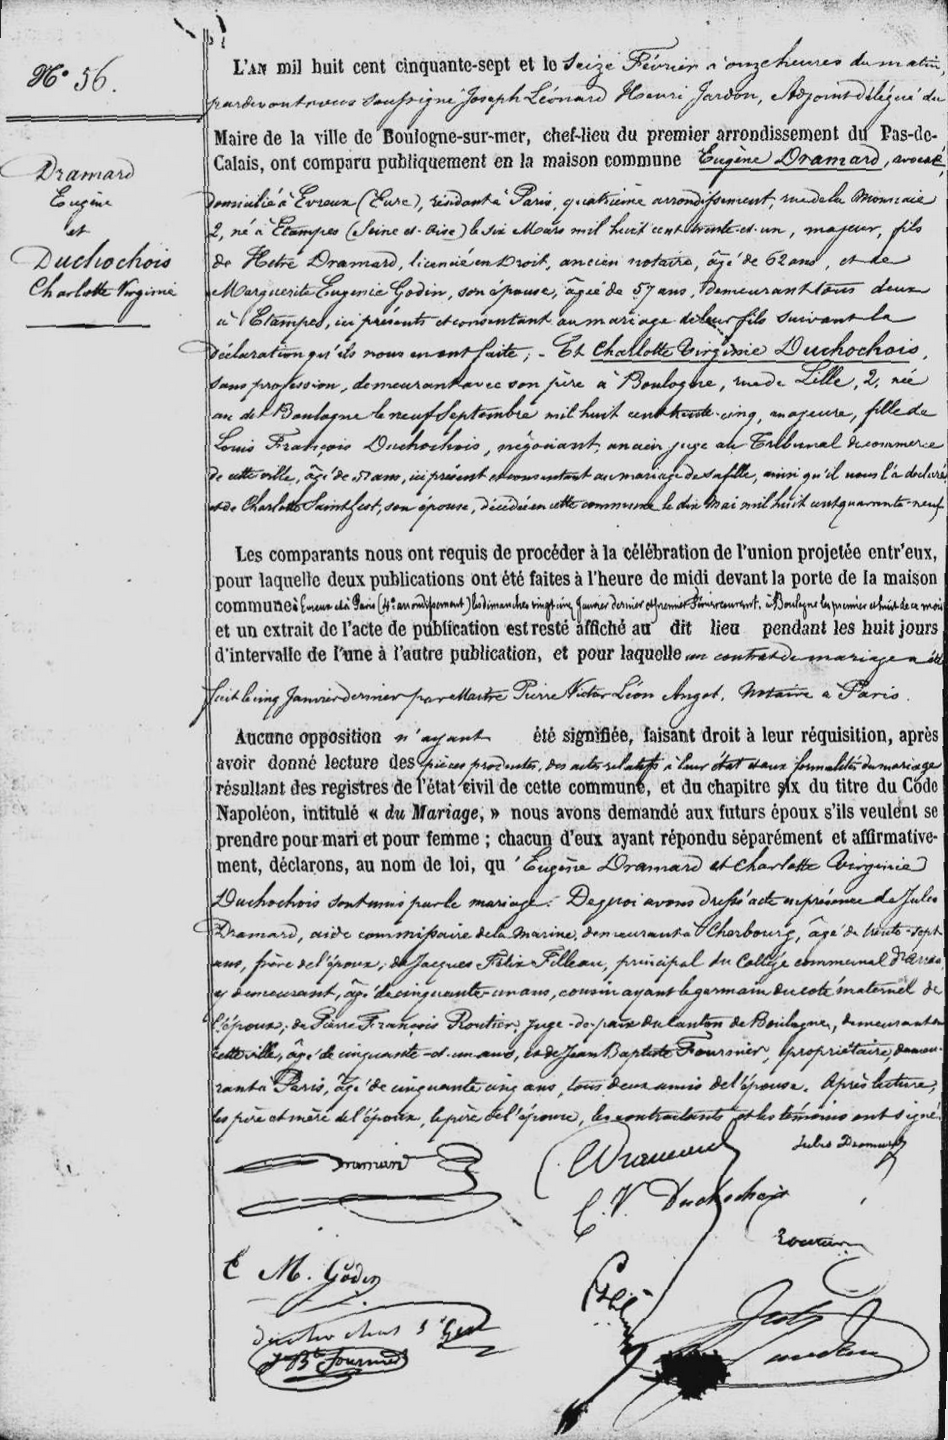 N° 56.
Dramard
Eugène
et
Duchochois
Charlotte Virginie
L'AN mil huit cent cinquante-sept et le Seize Février à onze heures du matin,
pardevant nous soussigné Joseph Léonard Henri Jardon, Adjoint délégué du
Maire de la ville de Boulogne-sur-mer, chef-lieu du premier arrondissement du Pas-de-
Calais, ont comparu publiquement en la maison commune Eugène Dramard, avocat,
domicilié à Evreux (Eure), résidant à Paris, quatrième arrondissement, rue de la Monnaie
2, né à Etampes (Seine-et-Oise) le six Mars mil huit cent trente-et-un, majeur, fils
de Dramard, licencié en Droit, ancien notaire, âgé de 62 ans, et de
Marguerite Eugénie Godin, son épouse, âgée de 57 ans, demeurant tous deux
à Etampes, ici présents et consentant au mariage de leur fils suivant la
déclaration qu'ils nous en ont faite; - Et Charlotte Virginie Duchochois,
sans profession, demeurant avec son père à Boulogne, rue de Lille, 2, née
au dit Boulogne le neuf Septembre mil huit cent trente-cinq, majeure, fille de
Louis François Duchochois, négociant, ancien juge au Tribunal de commerce
de cette ville, âgé de 57 ans, ici présent et consentant au mariage de sa fille, ainsi qu'il nous l'a déclaré
et de Charlotte Saint Gest, son épouse, décédée en cette commune le dix Mai mil huit cent quarante-neuf
Les comparants nous ont requis de procéder à la célébration de l'union projetée entr'eux,
pour laquelle deux publications ont été faites à l'heure de midi devant la porte de la maison
commune à Evreux et à Paris (4e arrondissement) les dimanches vingt cinq Janvier dernier et premier Février courant, à Boulogne les premier et huit de ce mois
et un extrait de l'acte de publication est resté affiché au dit lieu pendant les huit jours
d'intervalle de l'une à l'autre publication, et pour laquelle un contrat de mariage a été
fait le cinq Janvier dernier par Maître Pierre Victor Léon Angot, Notaire à Paris.
Aucune opposition n'ayant été signifiée, faisant droit à leur réquisition, après
avoir donné lecture des pièces produites, des actes relatifs à leur état et aux formalités du mariage
résultant des registres de l'état civil de cette commune, et du chapitre six du titre du Code
Napoléon, intitulé « du Mariage, » nous avons demandé aux futurs époux s'ils veulent se
prendre pour mari et pour femme ; chacun d'eux ayant répondu séparément et affirmative-
ment, déclarons, au nom de loi, qu'Eugène Dramard et Charlotte Virginie
Duchochois sont unis par le mariage. De quoi avons dressé acte en présence de Jules
Dramard, aide commissaire de la marine, demeurant à Cherbourg, âgé de trente-sept
ans, frère de l'époux; de Jacques Félix Filleau, principal du Collège communal d'Arras
y demeurant, âgé de cinquante-un ans, cousin ayant le germain du côté maternel de
l'époux; de Pierre François Routier, Juge-de-paix du canton de Boulogne, demeurant en
cette ville, âgé de cinquante-et-un ans, et de Jean Baptiste Fournier, propriétaire, demeu-
rant à Paris, âgé de cinquante cinq ans, tous deux amis de l'épouse. Après lecture,
les père et mère de l'époux, le père de l'épouse, les contractants et les témoins ont signé.
Dramard
Dramard
Jules Dramard
C. V. Duchochois
Routier
E M. Godin
duchochois St Gest
J. Bte Fournier